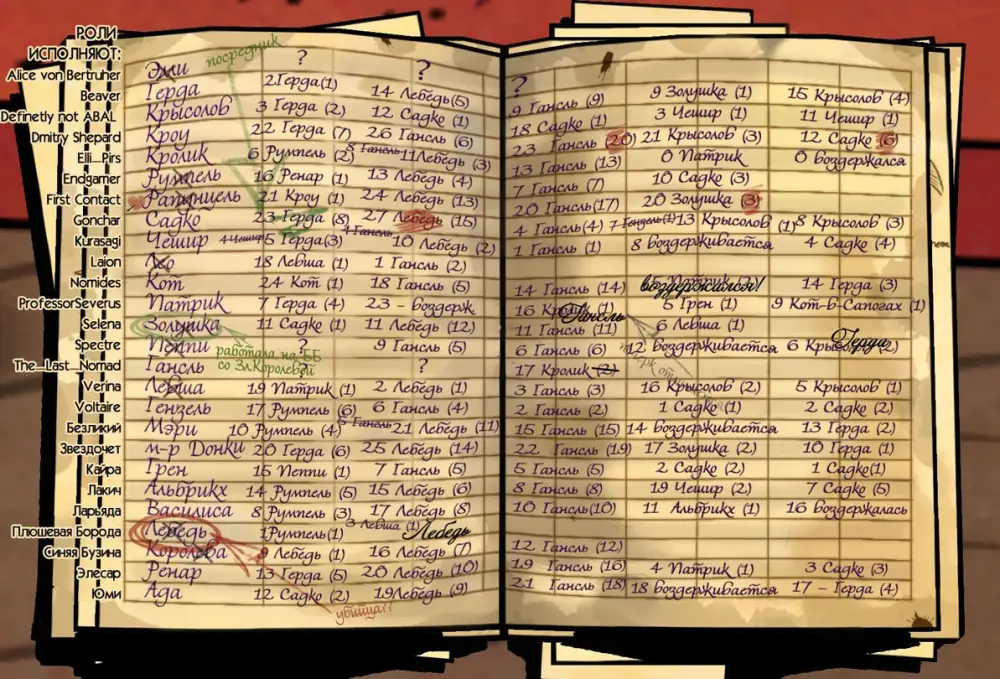 РОЛИ
ИСПОЛНЯЮТ:
посредник
? ? ?
Alice von Bertruher Эми 2 Герда (1) 14 Лебедь (5) 9 Гансль (9) 9 Золушка (1) 15 Крысолов (4)
Beaver Герда 3 Герда (2) 12 Садко (1) 18 Садко (1) 3 Чешир (1) 11 Чешир (1)
Definetly not ABAL Крысолов 22 Герда (7) 26 Гансль (6) 23 Гансль (20) 21 Крысолов (3) 12 Садко (6)
Dmitry Shepard Кроу 6 Румпель (2) 8 Гансль 11 Лебедь (3) 13 Гансль (13) 0 Патрик 0 воздержался
Elli_Pirs Кролик 16 Ренар (1) 13 Лебедь (4) 7 Гансль (7) 10 Садко (3)
Endgamer Румпель 21 Кроу (1) 24 Лебедь (13) 20 Гансль (17) 20 Золушка (3)
First Contact Рапунцель 23 Герда (8) 27 Лебедь (15) 4 Гансль (4) 7 Гансль (1) 13 Крысолов (1) 8 Крысолов (3)
Gonchar Садко 4 Чешир 5 Герда (3) 4 Гансль 10 Лебедь (2) 1 Гансль (1) 8 воздерживается 4 Садко (4)
Kurasagi Чешир 18 Левша (1) 1 Гансль (2)
Laion Лео 24 Кот (1) 18 Гансль (5) 14 Гансль (14) воздержался! 14 Герда (3)
Nomides Кот 7 Герда (4) 23 - воздерж 16 (1) 5 Грен (1) 9 Кот-в-Сапогах (1)
ProfessorSeverus Патрик 11 Садко (1) 11 Лебедь (12) Гансль 11 Гансль (11) 6 Левша (1) Герда
Selena Золушка ? 9 Гансль (5) 6 Гансль (6) 12 воздерживается 6 (2)
Spectre Пеппи работала на ББ
со Зл.Королевой
The_Last_Nomad Гансль ? 17 Кролик (2)
Verina Левша 19 Патрик (1) 2 Лебедь (1) 3 Гансль (3) 16 Крысолов (2) 5 Крысолов (1)
Voltaire Гензель 17 Румпель (6) 6 Гансль (4) 2 Гансль (2) 1 Садко (1) 2 Садко (2)
Безликий Мэри 10 Румпель (4) Гансль 21 Лебедь (11) 15 Гансль (15) 14 воздерживается 13 Герда (2)
Звездочет м-р Донки 20 Герда (6) 25 Лебедь (14) 22 Гансль (19) 17 Золушка (2) 10 Герда (1)
Кайра Грен 15 Пеппи (1) 7 Гансль (5) 5 Гансль (5) 2 Садко (2) 1 Садко (1)
Лакич Альбрихх 14 Румпель (5) 15 Лебедь (6) 8 Гансль (8) 19 Чешир (2) 7 Садко (5)
Ларьяда Василиса 8 Румпель (3) 17 Лебедь (8) 10 Гансль (10) 11 Альбрихх (1) 16 воздержалась
Плюшевая Борода Лебедь 1 Румпель (1) 3 Левша (1) Лебедь
Синяя Бузина Королева 9 Лебедь (1) 16 Лебедь (7) 12 Гансль (12)
Элесар Ренар 13 Герда (5) 20 Лебедь (10) 19 Гансль (16) 4 Патрик (1) 3 Садко (3)
Юми Ада 12 Садко (2) 19 Лебедь (9) 21 Гансль (18) 18 воздерживается 17 - Герда (4)
убийца??